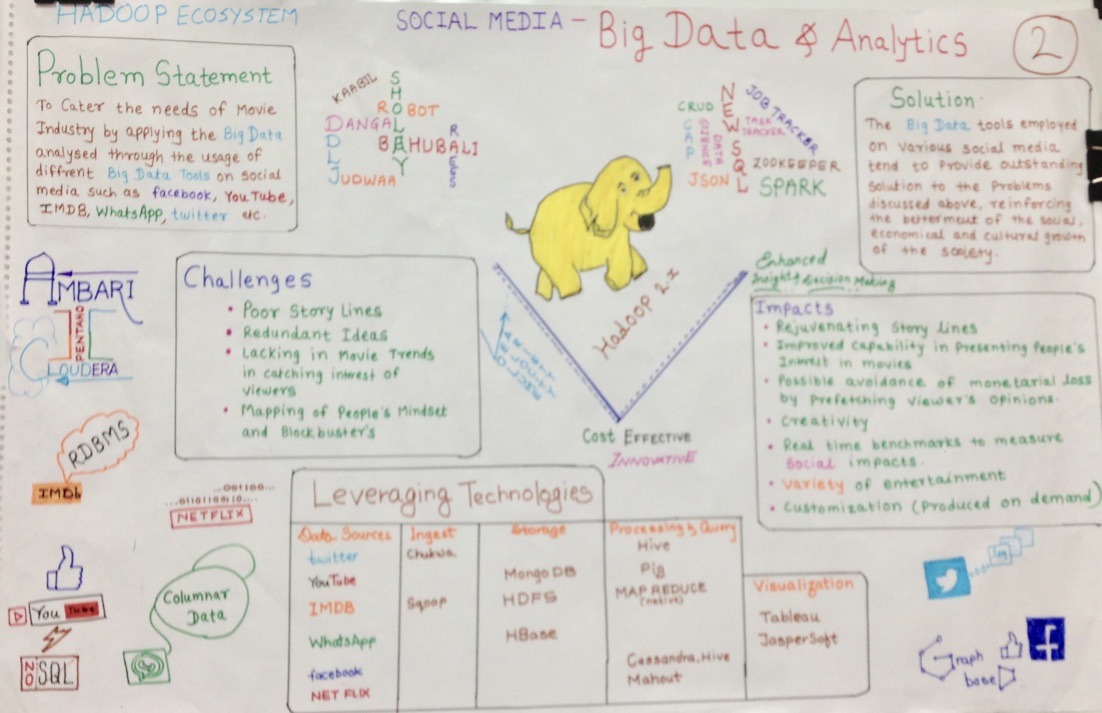 HADOOP ECOSYSTEM
SOCIAL MEDIA - Big Data & Analytics
2
Problem Statement
To Cater the needs of Movie
Industry by applying the Big Data
analysed through the usage of
diffrent Big Data Tools on social
media such as facebook, YouTube,
IMDB, WhatsApp, twitter etc.
KAABIL
SHOLAY
ROBOT
DANGAL
DDLJ
BAHUBALI
RAEES
JUDWAA
NEWSQL
JOB TRACKER
CRUD
TASK
TRACKER
CAP
DATA
SCIENCE
ZOOKEEPER
JSON
SPARK
Solution:
The Big Data tools employed
on various social media
tend to Provide outstanding
solution to the Problems
discussed above, reinforcing
the betterment of the social,
economical and cultural growth
of the society.
AMBARI
PENTAHO
CLOUDERA
Challenges
Poor Story Lines
Redundant Ideas
Lacking in Movie Trends
in catching interest of
viewers
Mapping of People's Mindset
and Blockbuster's
Hadoop 2.x
Cost EFFECTIVE
INNOVATIVE
Enhanced
Insight & Decision Making
Impacts
Rejuvenating Story lines
Improved capability in Presenting People's
Interest in movies
Possible avoidance of monetarial loss
by Prefetching viewer's opinions.
Creativity
Real time benchmarks to measure
social impacts.
Variety of entertainment
Customization (Produced on demand)
RDBMS
IMDb
..001100...
...01101100110....
NETFLIX
You Tube
NO SQL
Columnar
Data
Leveraging Technologies
Data Sources Ingest Storage Processing & Query
twitter Chukwa Hive
YouTube MongoDB Pig
IMDB Sqoop HDFS MAP REDUCE
(native)
WhatsApp HBase
facebook Cassandra, Hive
NET FLIX Mahout
Visualization
Tableau
JasperSoft
Graph
base
f